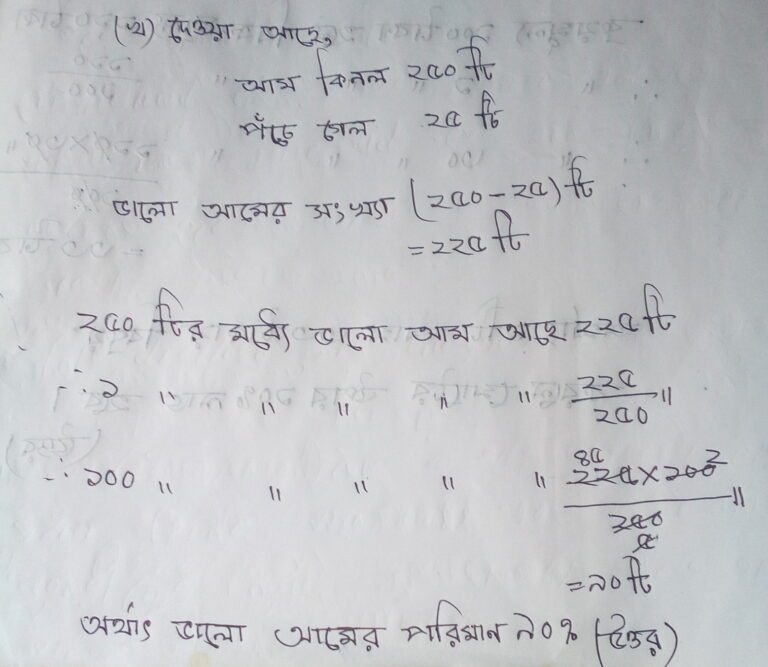 (খ) দেওয়া আছে,
আম কিনল ২৫০ টি
পঁচে গেল ২৫ টি
ভালো আমের সংখ্যা (২৫০ - ২৫) টি
= ২২৫ টি
২৫০ টির মধ্যে ভালো আম আছে ২২৫ টি
∴ ১ " " " " " ২২৫/২৫০ "
∴ ১০০ " " " " " ৪৫ ২২৫ × ১০০ ২ / ২৫০ ৫ "
= ৯০ টি
অর্থাৎ ভালো আমের পরিমান ৯০% (উত্তর)